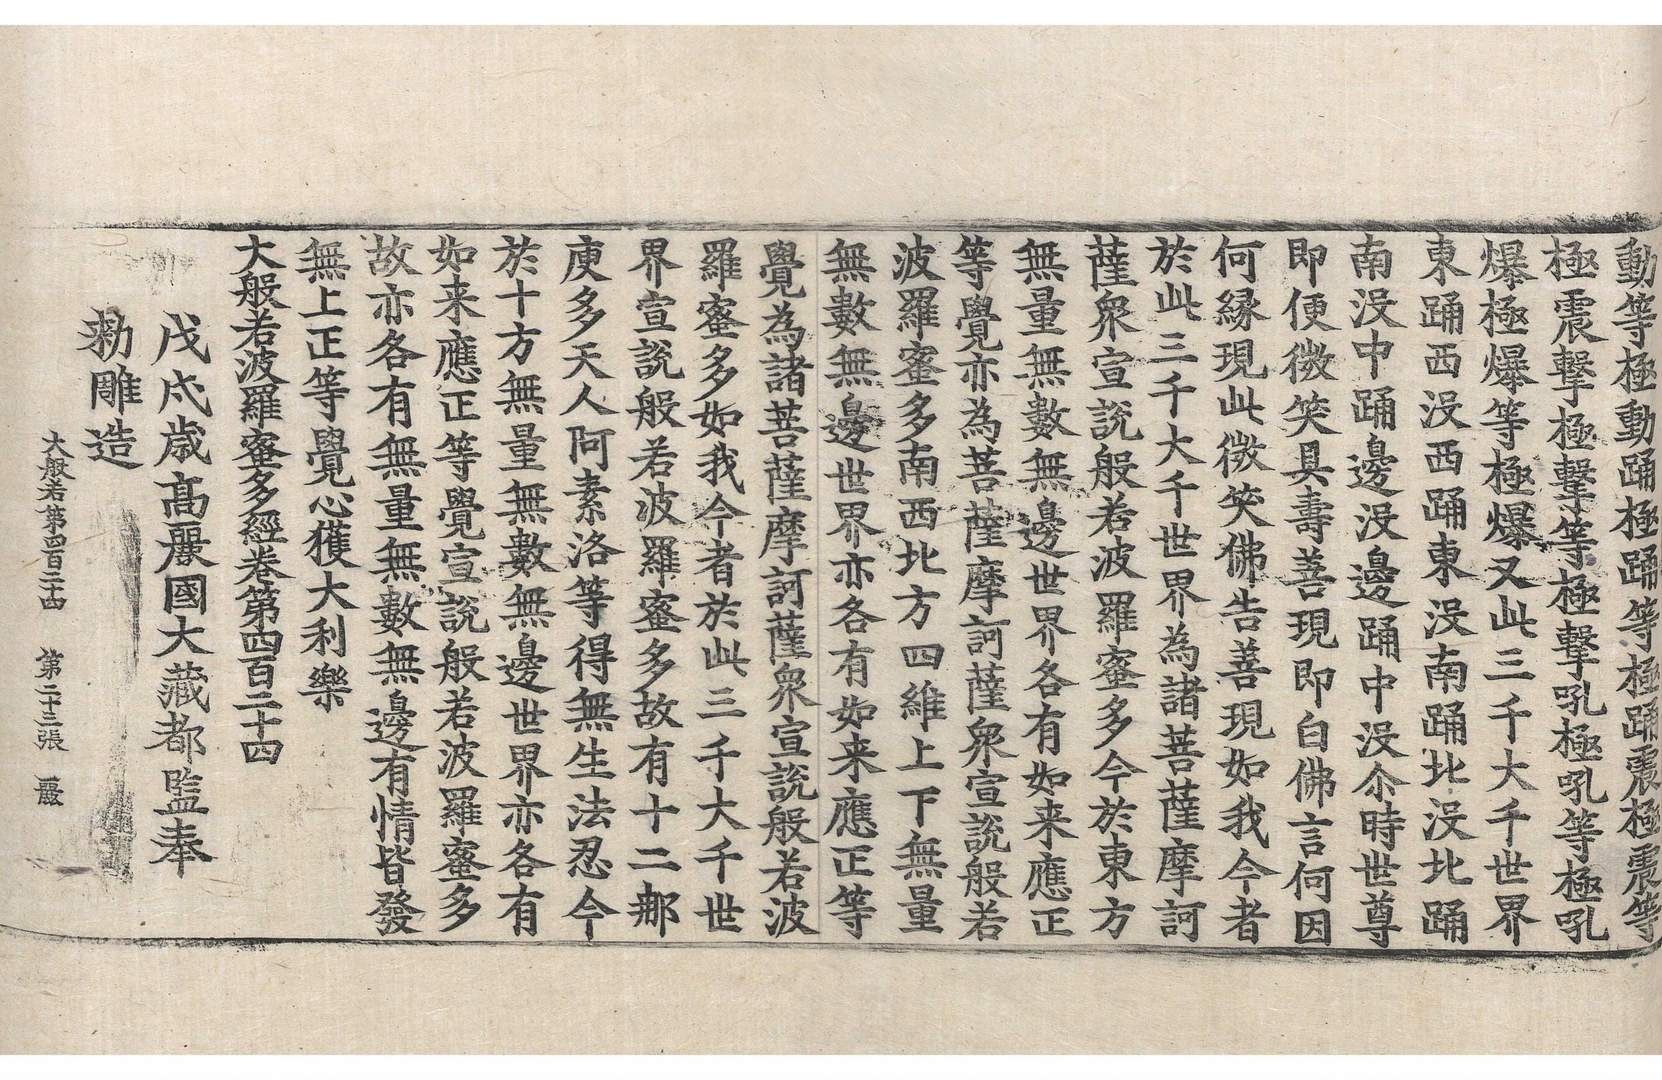 動等極動踊極踊等極踊震極震等
極震擊極擊等極擊吼極吼等極吼
爆極爆等極爆又此三千大千世界
東踊西没西踊東没南踊北没北踊
南没中踊邊没邊踊中没尒時世尊
即便微笑具壽善現即白佛言何因
何縁現此微笑佛告善現如我今者
於此三千大千世界為諸菩薩摩訶
薩衆宣說般若波羅蜜多今於東方
無量無數無邊世界各有如来應正
等覺亦為菩薩摩訶薩衆宣說般若
波羅蜜多南西北方四維上下無量
無數無邊世界亦各有如来應正等
覺為諸菩薩摩訶薩衆宣說般若波
羅蜜多如我今者於此三千大千世
界宣說般若波羅蜜多故有十二那
庾多天人阿素洛等得無生法忍今
於十方無量無數無邊世界亦各有
如来應正等覺宣說般若波羅蜜多
故亦各有無量無數無邊有情皆發
無上正等覺心獲大利樂
大般若波羅蜜多經卷第四百二十四
戊戌歲高麗國大藏都監奉
勅雕造
大般若第四百二十四 第二十三張 嚴